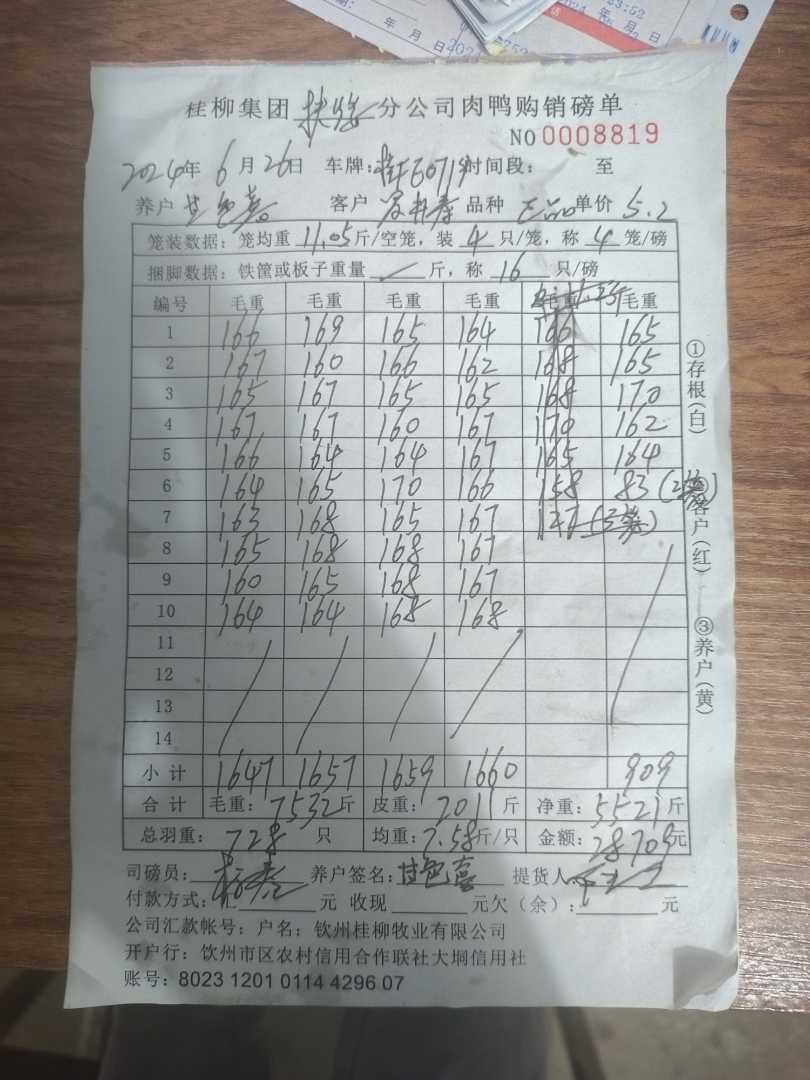 桂柳集团 扶绥 分公司肉鸭购销磅单
NO 0008819
2024年 6 月 26日 车牌: 时间段: 至
养户 客户 品种 正品 单价 5.2
笼装数据: 笼均重 11.05 斤/空笼, 装 4 只/笼, 称 4 笼/磅
捆脚数据: 铁筐或板子重量 斤, 称 16 只/磅
编号 毛重 毛重 毛重 毛重 毛重 毛重
1 166 169 165 164 166 165
2 167 160 166 162 168 165
3 165 167 165 165 168 170
4 167 167 160 167 170 162
5 166 164 164 167 165 164
6 164 165 170 166 158 83
7 163 168 165 167
8 165 168 168 167
9 160 165 168 167
10 164 164 168 168
11
12
13
14
小计 1647 1657 1659 1660 909
合计 毛重: 7532斤 皮重: 2011斤 净重: 5521斤
总羽重: 728 只 均重: 7.58斤/只 金额: 28709元
司磅员: 养户签名: 提货人
付款方式: 元 收现 元欠(余): 元
公司汇款帐号: 户名: 钦州桂柳牧业有限公司
开户行: 饮州市区农村信用合作联社大垌信用社
账号: 8023 1201 0114 4296 07
①存根(白)
②客户(红)
③养户(黄)
年 月 日